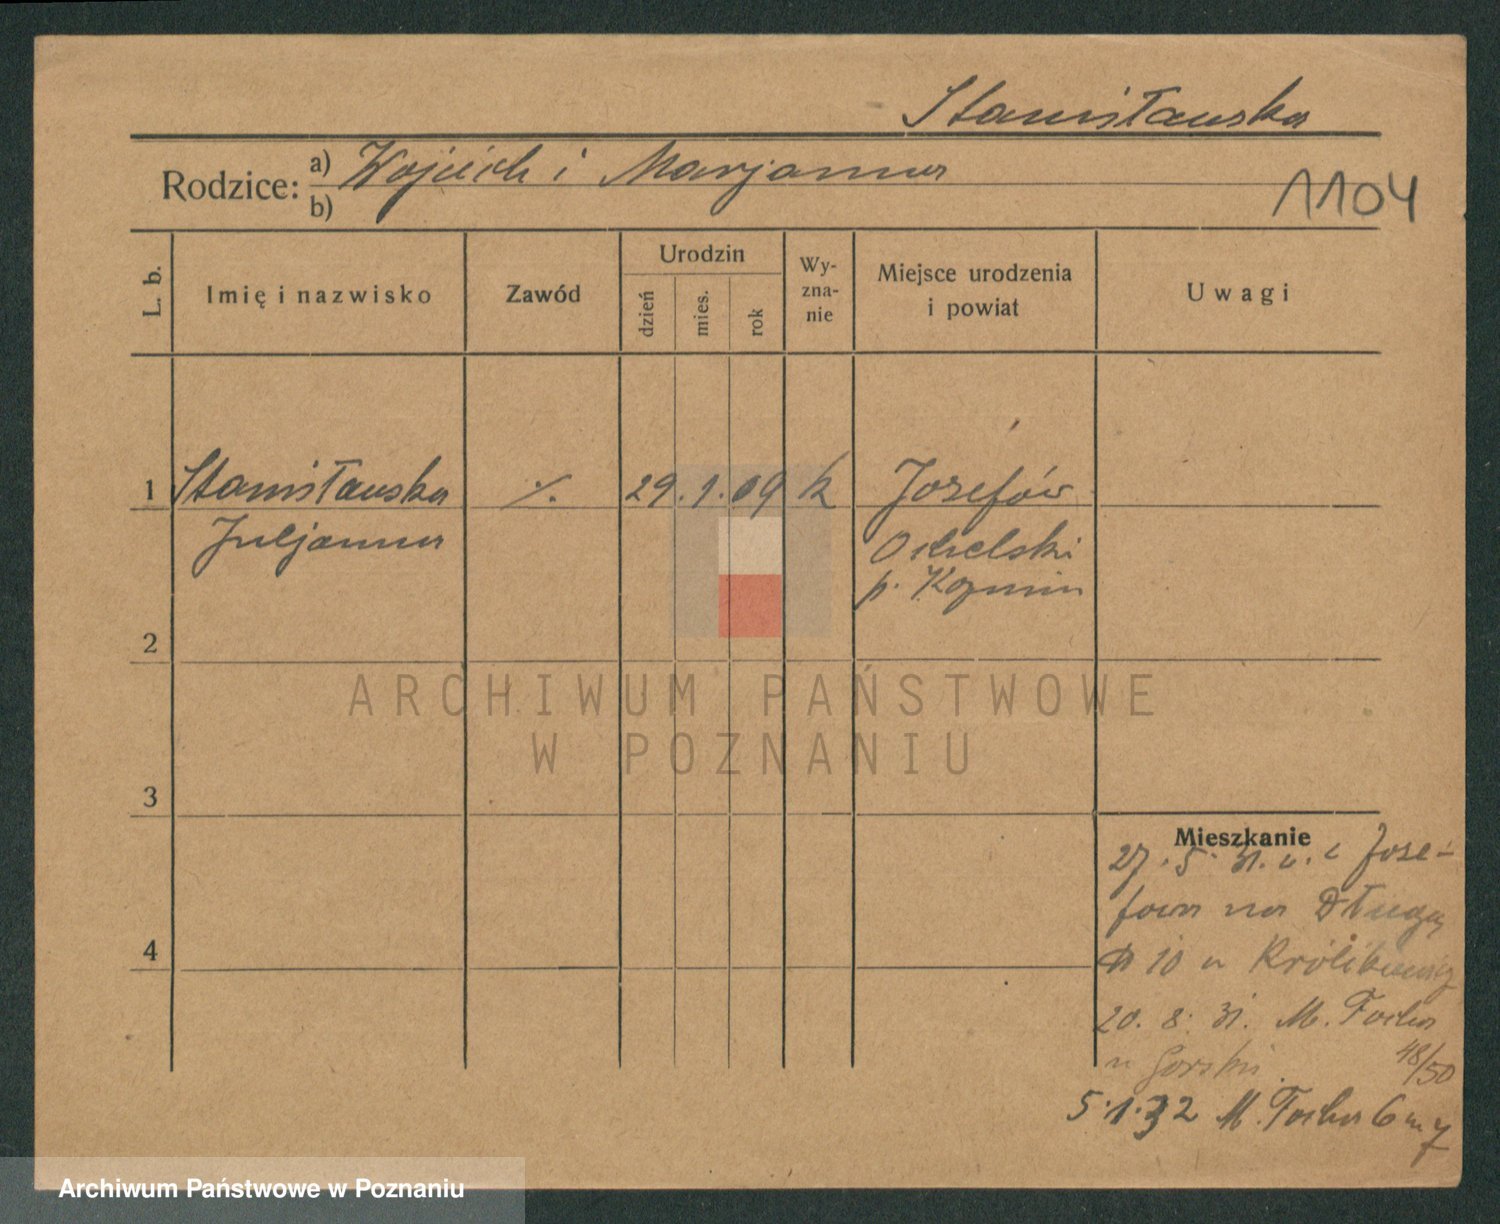 Stanisławska
Rodzice: a) Wojciech i Marjanna
b)
1104
L. b.
Imię i nazwisko
Zawód
Urodzin
dzień
mies.
rok
Wy-
zna-
nie
Miejsce urodzenia
i powiat
Uwagi
1 Stanisławska ⁒ 29.1.09 k Józefów
Juljanna
p. Koźmin
2
3
4
Mieszkanie
27.5.31. Józe-
fowa na Długą
10 u
20.8.31. M. Focha
u Gorski. 48/50
5.1.32 M. Focha 6 m 7
ARCHIWUM PAŃSTWOWE
W POZNANIU
Archiwum Państwowe w Poznaniu